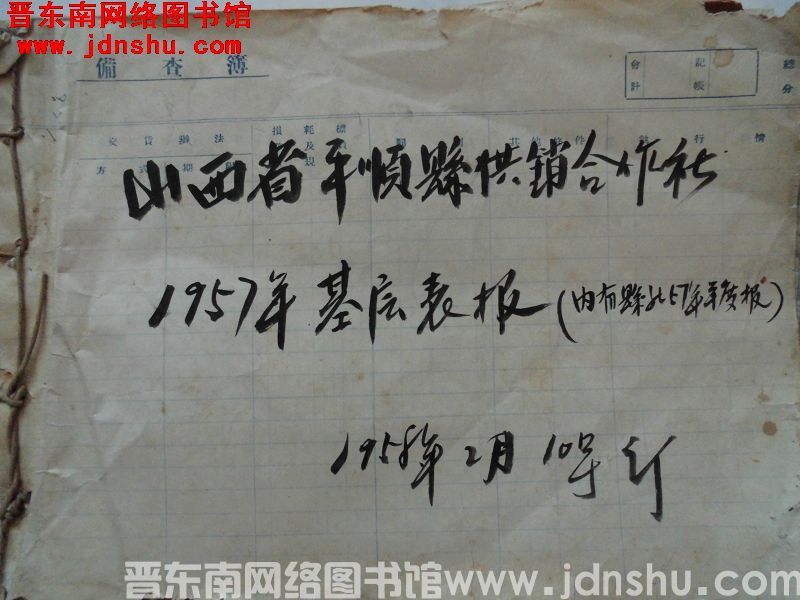 晋东南网络图书馆
www.jdnshu.com
備查簿
會計 記帳 總分
交貨辦法 損耗及規 其他條件 執行情
方式 期
山西省平順縣供銷合作社
1957年基层表报(内有縣社57年年度报)
1958年2月10号订
晋东南网络图书馆www.jdnshu.com